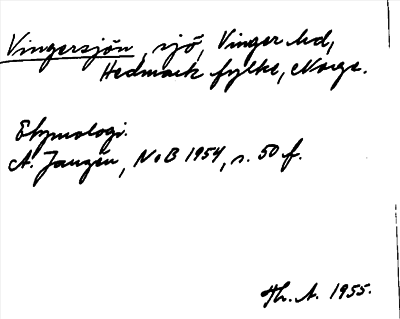 Vingersjön, sjö, Vinger hd,
Hedmark fylke, Norge.
Etymologi.
A. Janzén, NoB 1954, s. 50 f.
Th. A. 1955.